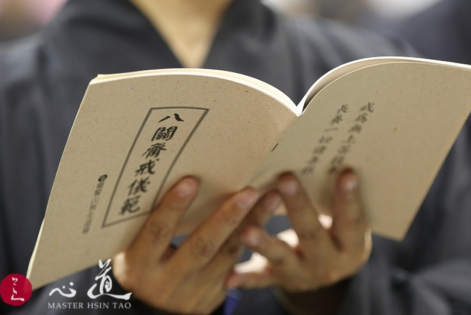 八關齋戒儀範
戒為無上菩提本
長養一切諸善根
心道
MASTER HSIN TAO